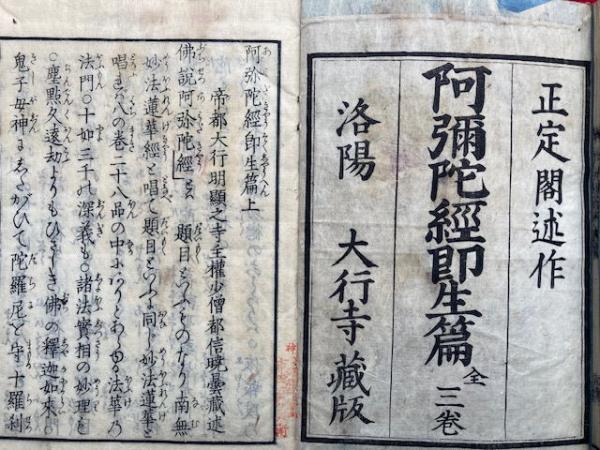 正定閣述作
阿彌陀經即生篇 全三卷
洛陽 大行寺藏版
阿弥陀經即生篇上
帝都大行明顯之寺主權少僧都信暁曇藏述
佛説阿弥陀經と 題目といふものなり南無
妙法蓮華經と唱て題目といふも同し妙法蓮華と
唱れハ八の卷二十八品の中にありとあらゆる法華乃
法門〇十如三千の深義も〇諸法實相の妙理も
〇塵點久遠劫よりもひさしき佛の釋迦如來
鬼子母神にしたがひて陀羅尼と守十羅刹